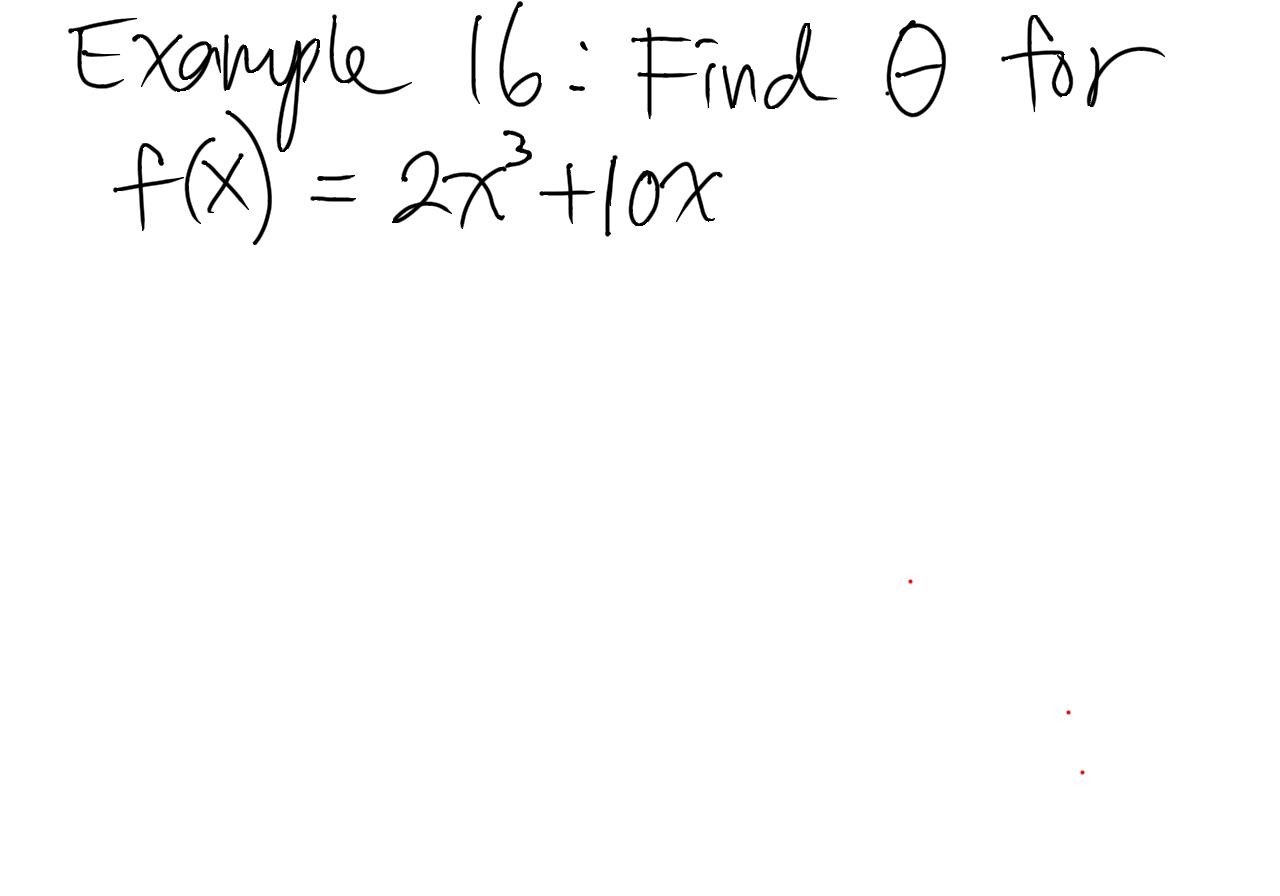 Example 16: Find θ for
f(x) = 2x³+10x